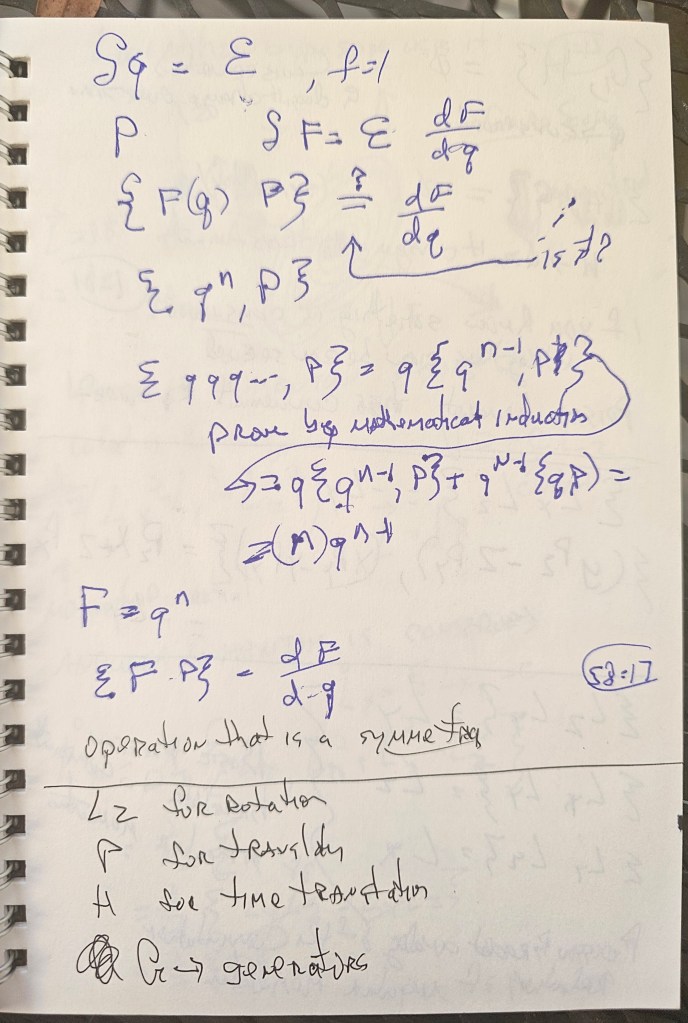 δq = ε , f=1
P δF = ε dF/dq
{F(q) P} ?= dF/dq
is it?
{q^n, P}
{qqq..., P} = q{q^{n-1}, P}
prove by mathematical induction
→ = q{q^{n-1}, P} + q^{n-1}{qP) =
= (n)q^{n-1}
F = q^n
{F.P} = dF/dq
58:17
operation that is a symmetry
Lz for rotation
P for
H for time translation
G → generators